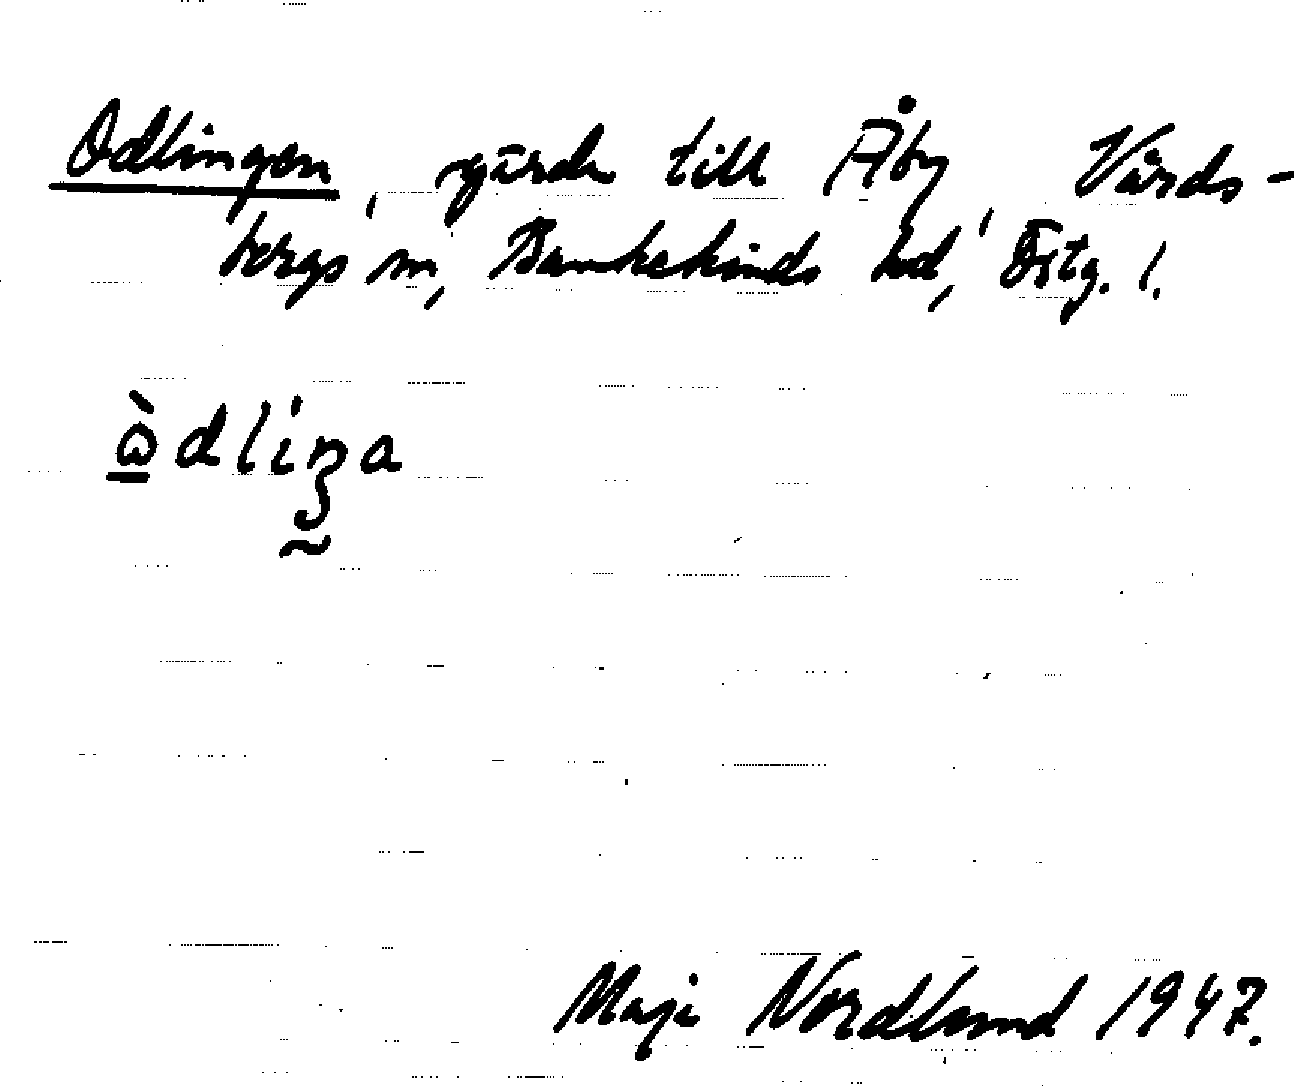 Odlingen, gärde till Åby Vårds-
bergs sn, Bankekinds hd, Östg. l.
ὼdliŋa
Maji Nordlund 1947.